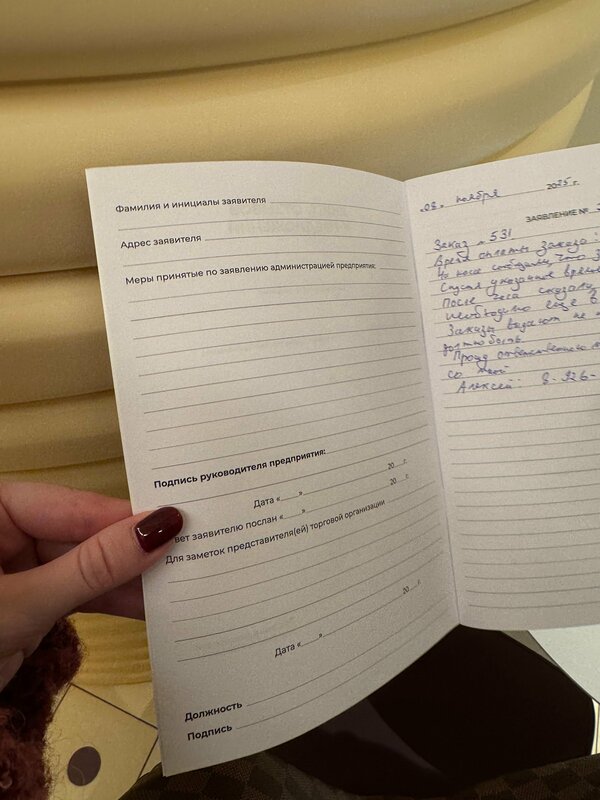 Фамилия и инициалы заявителя
Адрес заявителя
Меры принятые по заявлению администрацией предприятия:
Подпись руководителя предприятия:
Дата «___»___ 20___г.
вет заявителю послан «___»___ 20___г.
Для заметок представителя(ей) торговой организации
Дата «___»___ 20___г.
Должность
Подпись
«08» ноября 2025 г.
ЗАЯВЛЕНИЕ №
Заказ № 531
Время оплаты заказа:
На кассе сообщили, что
Спустя указанное время
После часа сказали
необходимо еще
Заказы выдают не
должно быть.
Прошу ответственно
со мной
Алексей: 8-926-